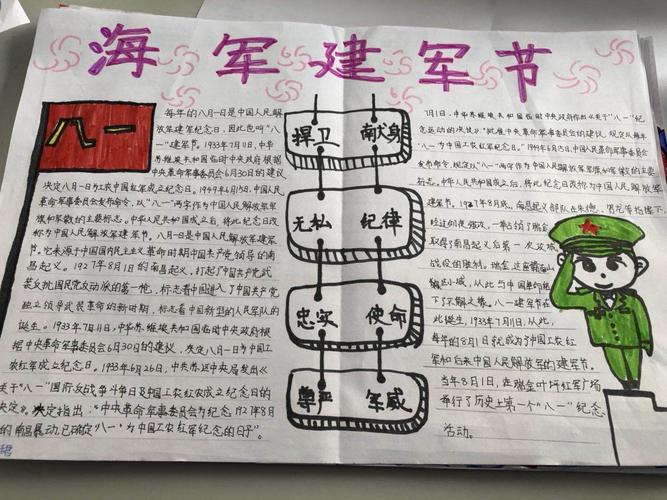 海军建军节
八一
每年的八月一日是中国人民解
放军建军纪念日，因此也叫“八
一”建军节。1933年7月11日，中华
苏维埃共和国临时中央政府根据
中央革命军事委员会6月30日的建议
决定八月一日为工农中国红军成立纪念日。1949年6月15日，中国人民
革命军事委员会发布命令，以“八一”两字作为中国人民解放军军
旗和军徽的主要标志。中华人民共和国成立之后，将此纪念日改
称为中国人民解放军建军节。八月一日是中国人民解放军建军
节。它来源于中国国内民主主义革命时期中国共产党领导的南
昌起义。1927年8月1日的南昌起义，打起了中国共产党武
装反抗国民党反动派的第一枪，标志着中国进入了中国共产党
独立领导武装革命的新时期，标志着中国新型的人民军队的
诞生。1933年7月11日，中华苏维埃共和国临时中央政府根
据中央革命军事委员会6月30日的建议，决定八月一日为中国工
农红军成立纪念日。1933年6月26日，中共苏区中央局发出《
关于“八一”国际反战争斗争日及中国工农红军成立纪念日的
决定》。决定指出：“中央革命军事委员会为纪念1927年8月1
的南昌暴动，已确定“八一”为中国工农红军纪念的日子”。
捍卫 献身
无私 纪律
忠实 使命
尊严 军威
7月1日，中华苏维埃共和国临时中央政府作出《关于“八一”纪
念运动的决议》“批准中央革命军事委员会的建议，规定以每年
“八一”为中国工农红军纪念日。1949年6月15日，中国人民革命军事委员会
发布命令，规定以“八一”两字作为中国人民解放军军旗和军徽的主要
标志。中华人民共和国成立之后，将此纪念日改称为中国人民解放军
建军节。1927年8月，南昌起义部队在朱德、
经过彻夜强攻，一举占领了
取得了南昌起义后第一次攻城
战役的胜利。瑞金，这座赣南山
区小城，从此与中国革命结
下了不解之缘。八一建军节在
此诞生，1933年7月11日，从此，
每年的8月1日就成为了中国工农红
军和后来中国人民解放军的建军节。
当年8月1日，在瑞金叶坪红军广场
举行了历史上第一个“八一”纪念
活动。